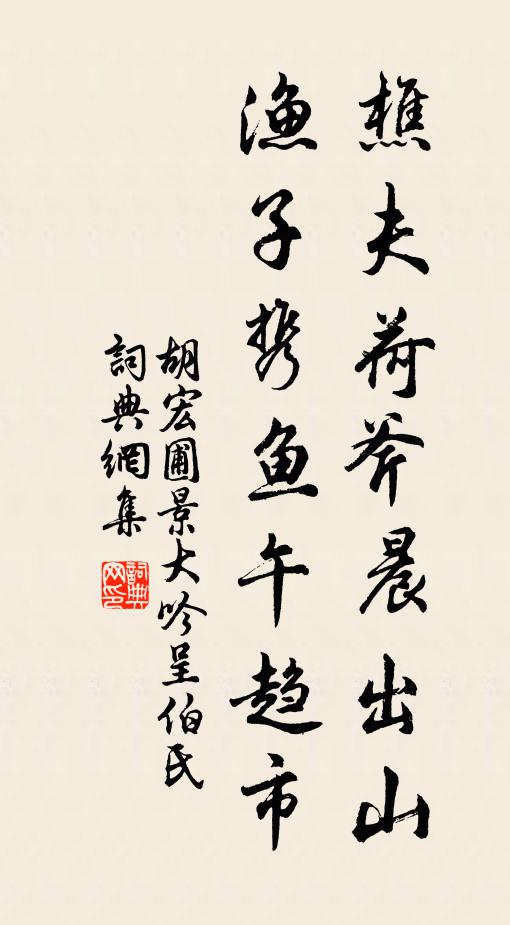 樵夫荷斧晨出山
渔子携鱼午趋市
胡宏圃景大吟呈伯氏
詞典網集
詞典网印